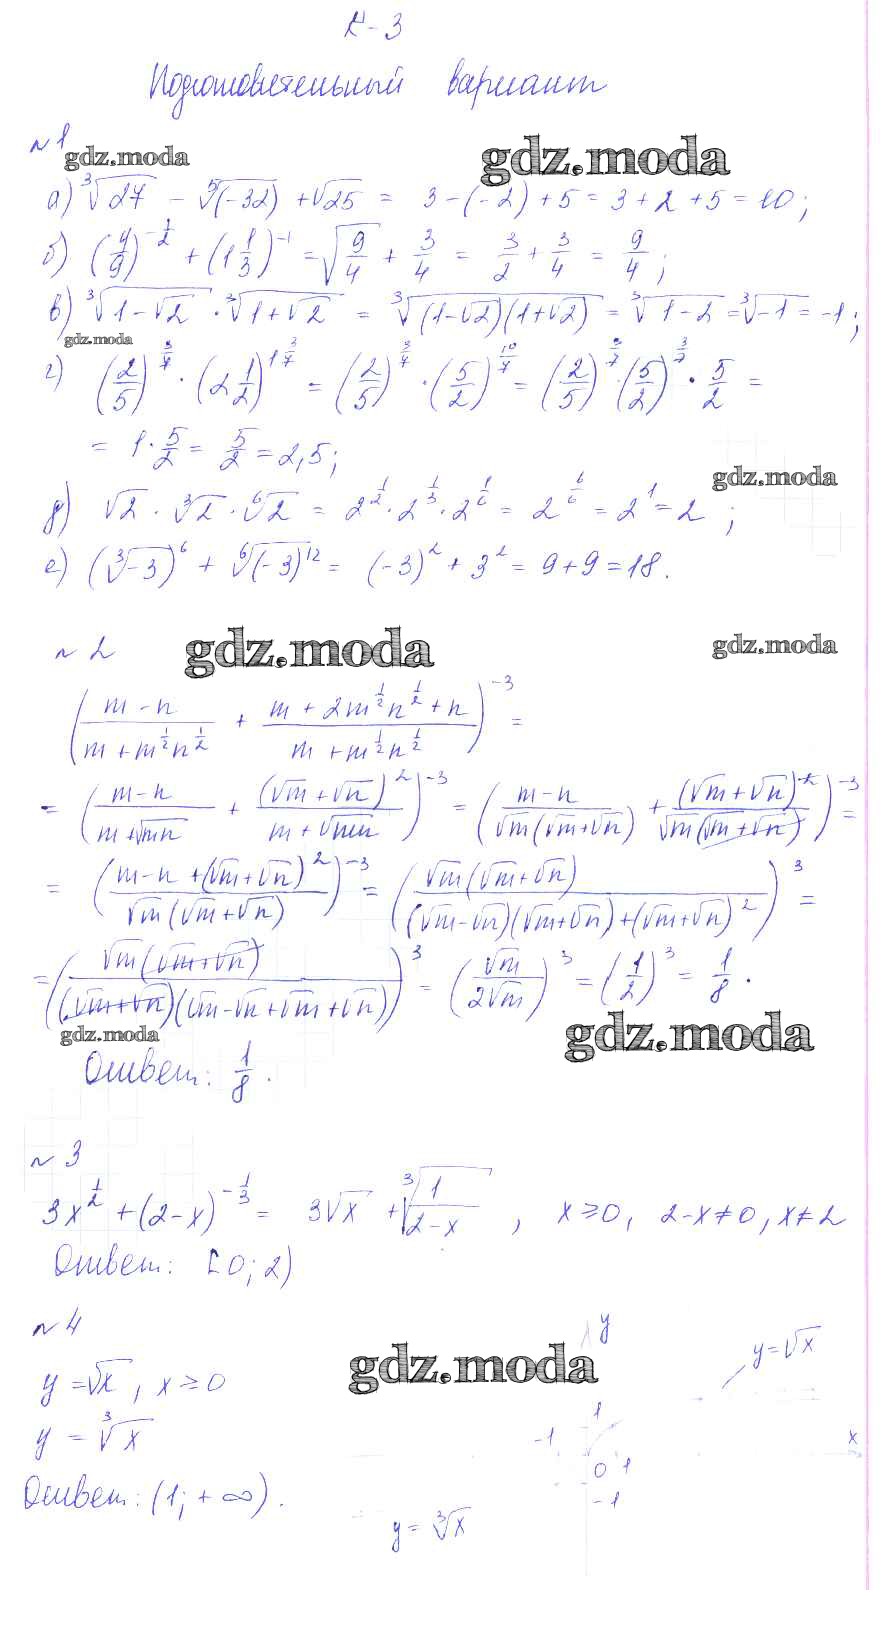 К-3
Подготовительный вариант
№1
gdz.moda gdz.moda
а) ∛27 - ⁵√(-32) + √25 = 3-(-2)+5 = 3+2+5 = 10;
б) (4/9)^(-1/2) + (1 1/3)^(-1) = √(9/4) + 3/4 = 3/2 + 3/4 = 9/4;
в) ∛(1-√2) · ∛(1+√2) = ∛((1-√2)(1+√2)) = ∛(1-2) = ∛(-1) = -1;
gdz.moda
г) (2/5)^(3/7) · (2 1/2)^(1 3/7) = (2/5)^(3/7) · (5/2)^(10/7) = (2/5)^(3/7) · (5/2)^(3/7) · 5/2 =
= 1 · 5/2 = 5/2 = 2,5;
gdz.moda
д) √2 · ∛2 · ⁶√2 = 2^(1/2) · 2^(1/3) · 2^(1/6) = 2^(6/6) = 2^1 = 2;
е) (∛-3)^6 + ⁶√(-3)^12 = (-3)^2 + 3^2 = 9+9 = 18.
№2 gdz.moda gdz.moda
((m-n)/(m+m^(1/2)n^(1/2)) + (m+2m^(1/2)n^(1/2)+n)/(m+m^(1/2)n^(1/2)))^(-3) =
= ((m-n)/(m+√mn) + (√m+√n)^2/(m+√mn))^(-3) = ((m-n)/(√m(√m+√n)) + (√m+√n)^2/(√m(√m+√n)))^(-3) =
= ((m-n+(√m+√n)^2)/(√m(√m+√n)))^(-3) = (√m(√m+√n)/((√m-√n)(√m+√n)+(√m+√n)^2))^3 =
= (√m(√m+√n)/((√m+√n)(√m-√n+√m+√n)))^3 = (√m/(2√m))^3 = (1/2)^3 = 1/8.
gdz.moda gdz.moda
Ответ: 1/8.
№3
3x^(1/2) + (2-x)^(-1/3) = 3√x + ∛(1/(2-x)), x≥0, 2-x≠0, x≠2
Ответ: [0; 2)
№4
gdz.moda
y = √x, x≥0
y = ∛x
Ответ: (1; +∞).
y
y=√x
1
-1
x
0 1
-1
y = ∛x